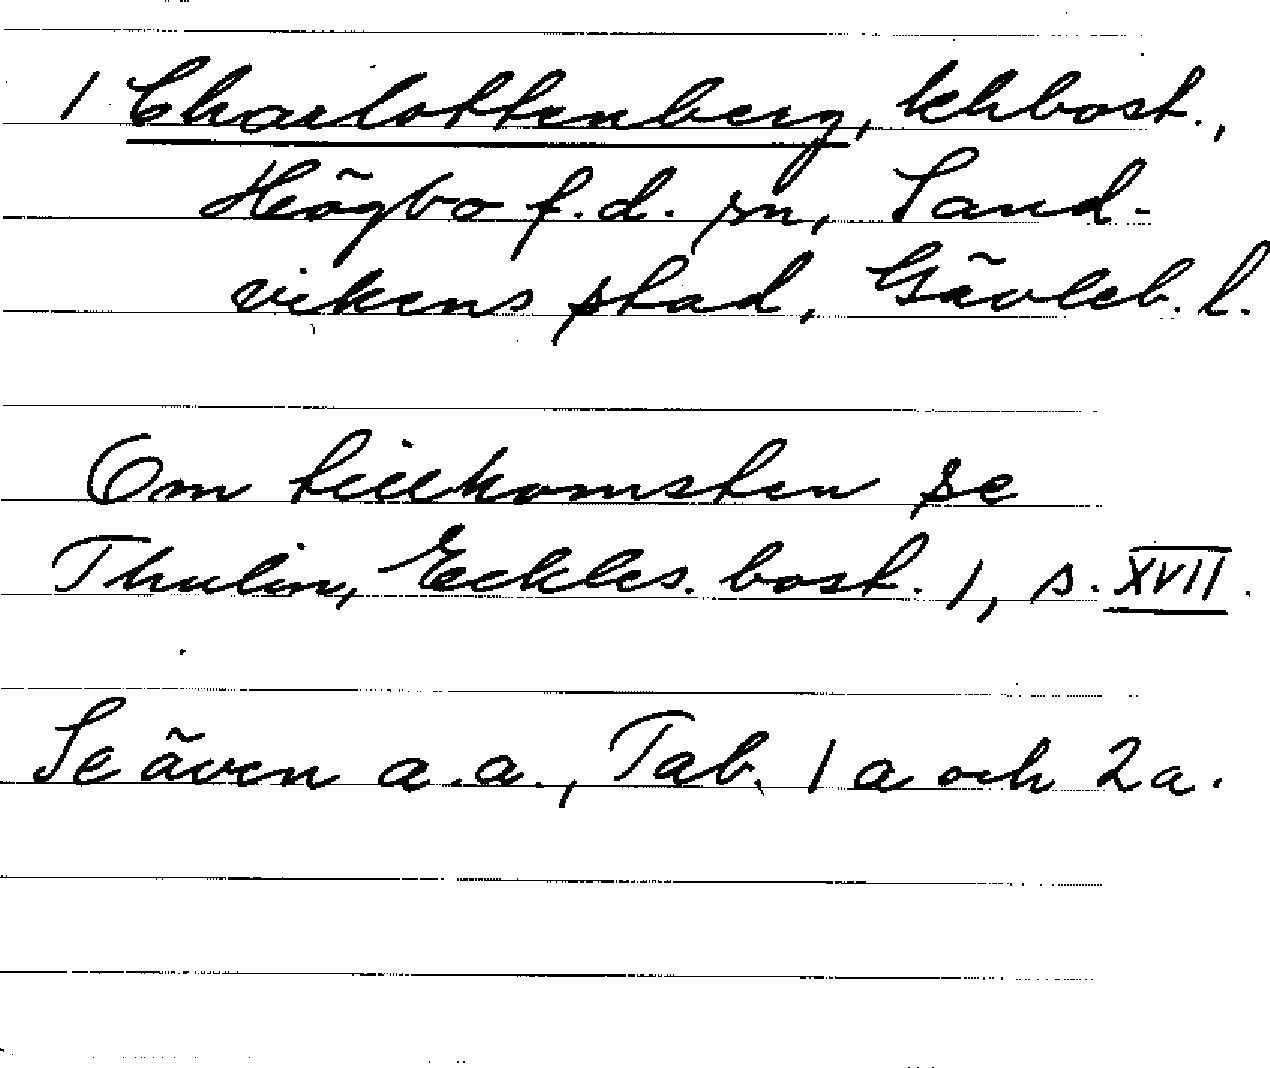 1 Charlottenberg, khbost.,
Högbo f.d. sn, Sand-
vikens stad, Gävleb. l.
Om tillkomsten se
Thulin, Eckles. bost. 1, s. XVII.
Se även a.a., Tab. 1 a och 2a.